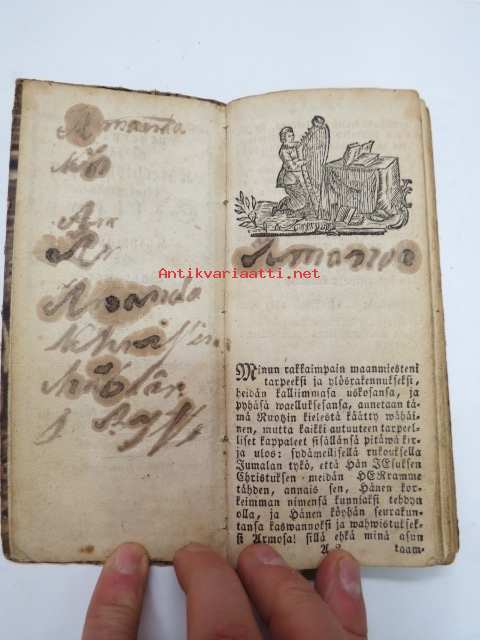 Amanda
Am
Ar
Amanda
Antikvariaatti.net
Amanda
Minun rakkaimpain maanmiesteni
tarpeeksi ja ylösrakennukseksi,
heidän kalliimmasa uskosansa, ja
pyhäsä waelluksesansa, annetaan tämä
Ruotzin kielestä käätty wähäi-
nen, mutta kaikki autuuteen tarpeel-
liset kappaleet sisällänsä pitäwä kir-
ja ulos: sydämellisellä rukouksella
Jumalan tykö, että Hän JEsuksen
Christuksen meidän HERramme
tähden, annais sen, Hänen kor-
keimman nimensä kunniaksi tehdyn
olla, ja Hänen köyhän seurakun-
tansa kaswannoksi ja wahwistuksek-
si Armosa! sillä ehkä minä asun
taam-